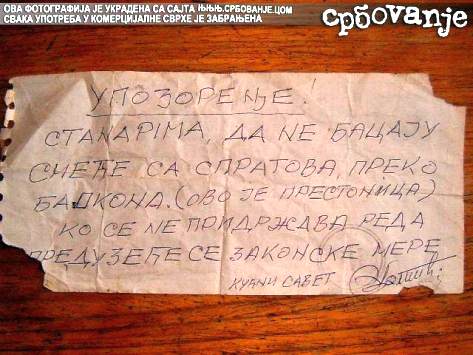 ОВА ФОТОГРАФИЈА ЈЕ УКРАДЕНА СА САЈТА ЊЊЊ.СРБОВАЊЕ.ЦОМ
СВАКА УПОТРЕБА У КОМЕРЦИЈАЛНЕ СВРХЕ ЈЕ ЗАБРАЊЕНА
србованје
УПОЗОРЕЊЕ!
СТАНАРIМА, ДА НЕ БАЦАЈУ
СМЕЋЕ СА СПРАТОВА, ПРЕКО
БАЛКОНА. (ОВО ЈЕ ПРЕСТОНИЦА)
КО СЕ НЕ ПРИДРЖАВА РЕДА
ПРЕДУЗЕЋЕ СЕ ЗАКОНСКЕ МЕРЕ
КУЋНИ САВЕТ